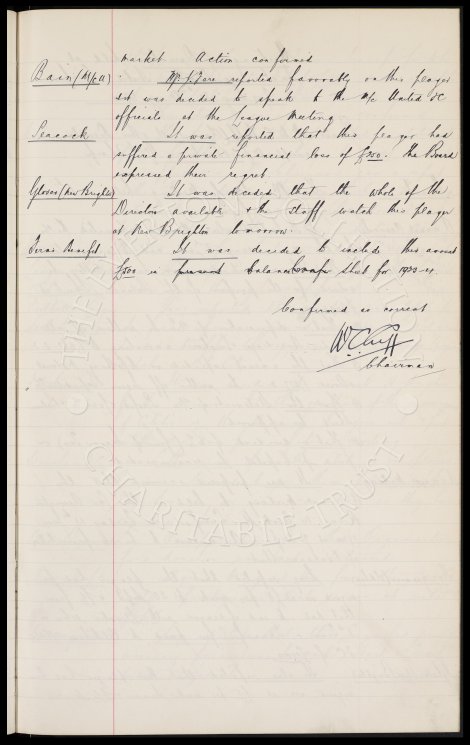 market. Action confirmed
Bain (M/c U) Mr. J. Fare reported favorably on this player
& it was decided to speak to the M/c United FC
officials at the League Meeting
Seacock It was reported that this player had
suffered a private financial loss of £500. The Board
expressed their regret
Glover (New Brighton) It was decided that the whole of the
Directors available & the staff watch this player
at New Brighton tomorrow.
Benefit It was decided to include this amount
£500 in balance sheet for 1923-4.
Confirmed as correct
W C Cuff
Chairman
THE EVERTON
CHARITABLE TRUST